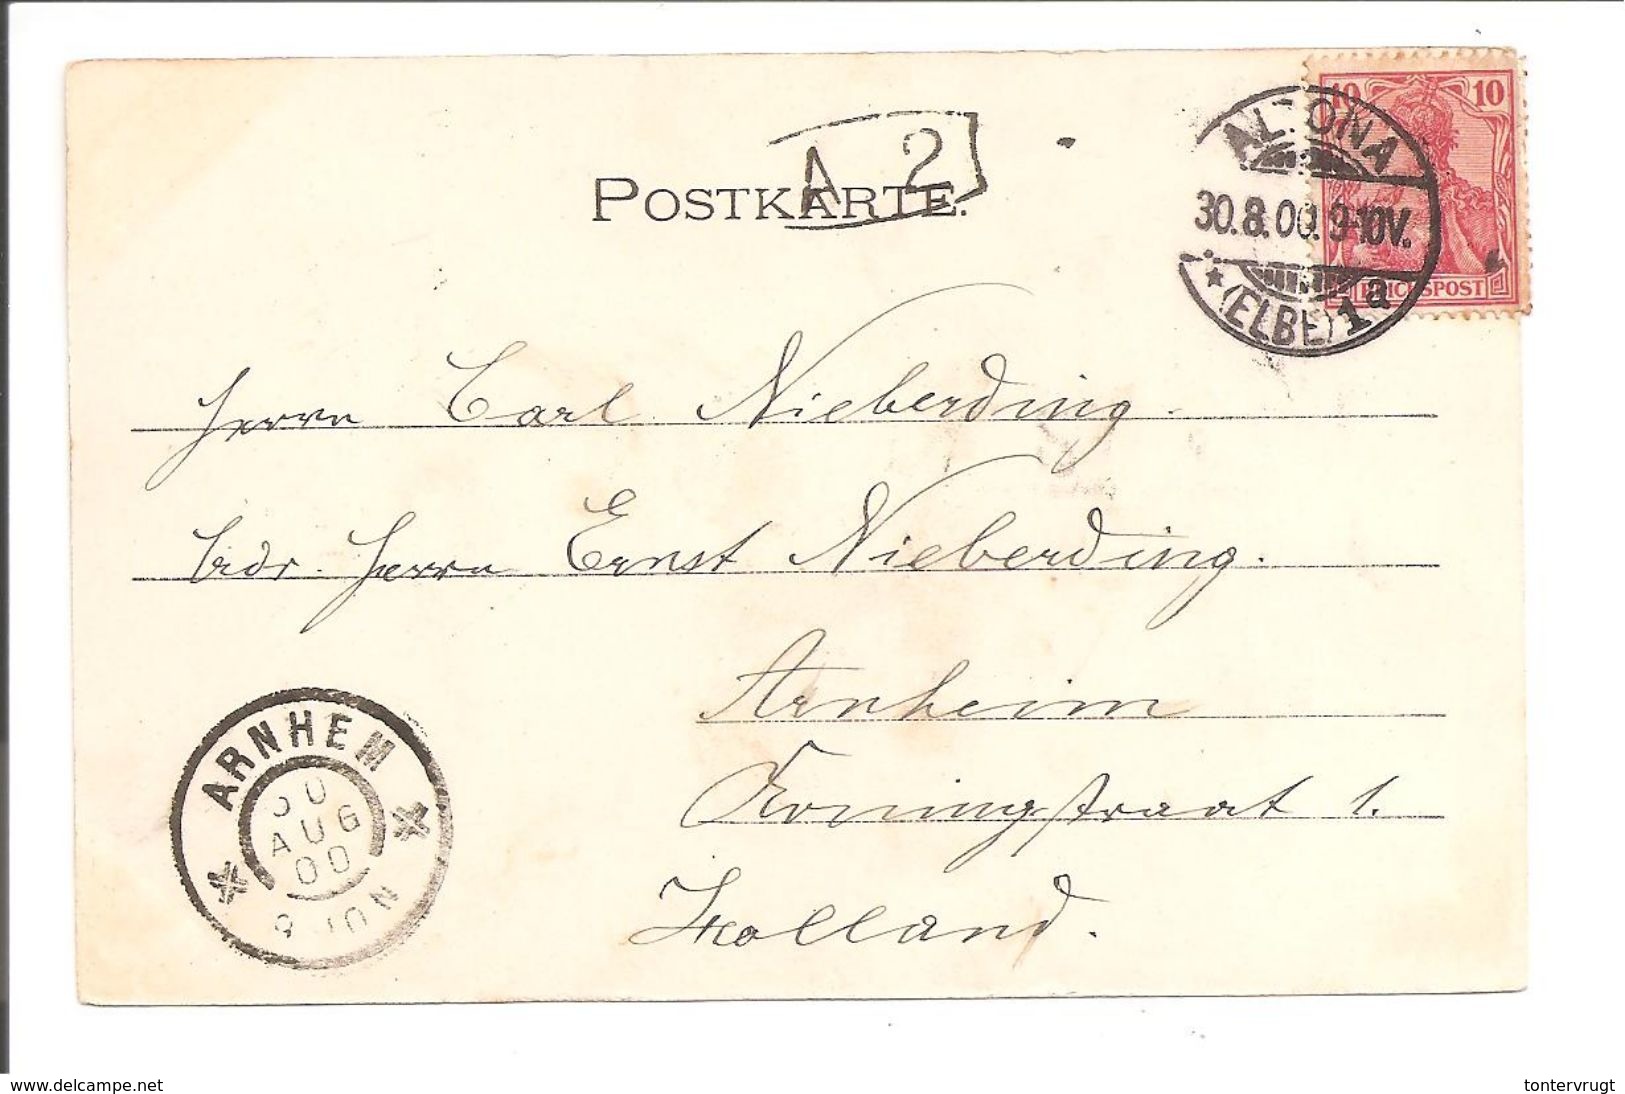 10 10
REICHSPOST
ALTONA
30.8.00. 9-10V.
(ELBE) 1a
A 2
POSTKARTE.
Herrn Carl Nieberding.
Adr. Herrn Ernst Nieberding.
Arnheim
Koningstraat 1.
Holland.
ARNHEM
30
AUG
00
www.delcampe.net
tontervrugt